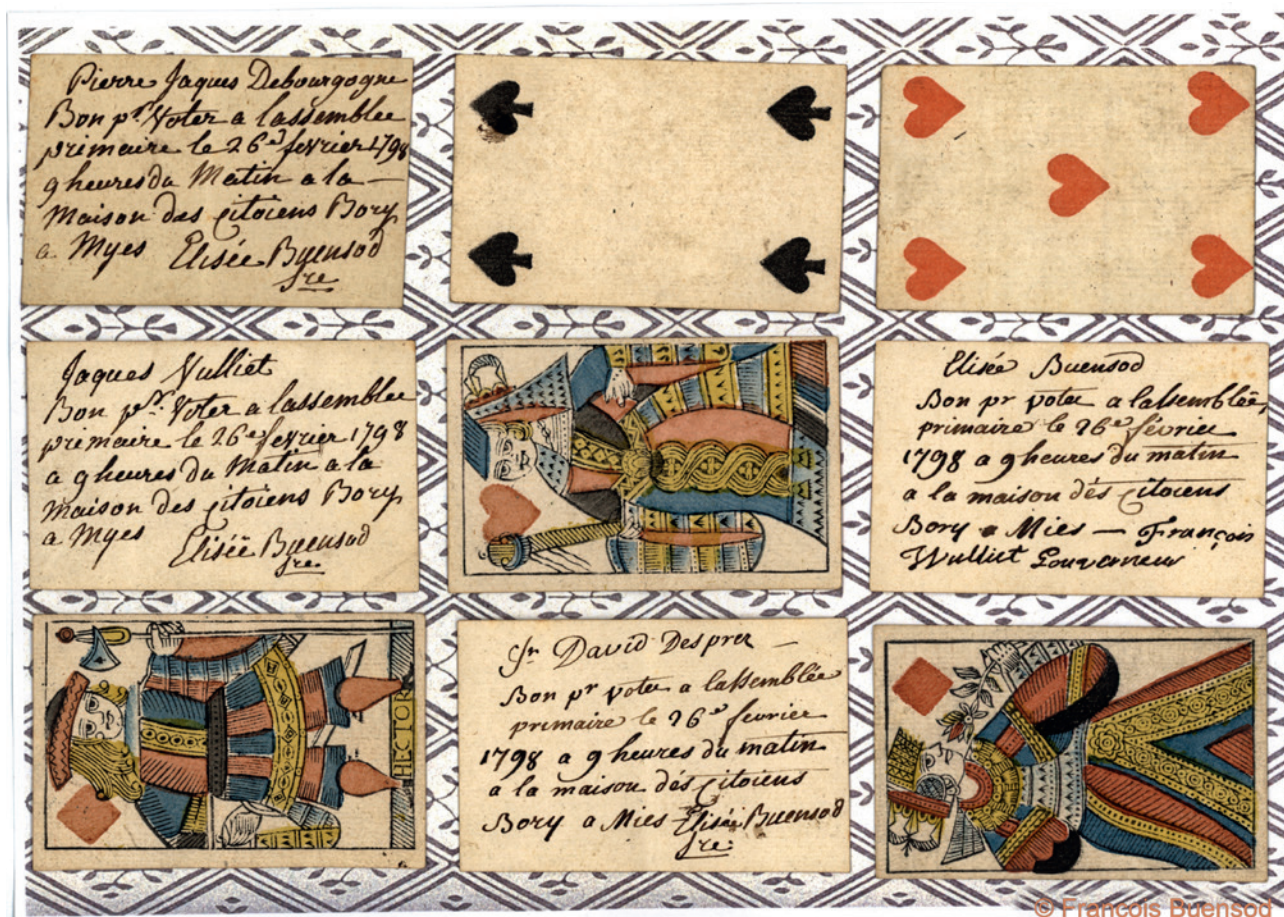 Pierre Jaques Debourgogne
Bon pr. Voter a lassemblee
primaire le 26e fevrier 1798
9 heures du Matin a la —
Maison des Citoiens Bory
a Myes Elisée Buensod
sre
Jaques Vulliet
Bon pr. Voter a lassemblee
primaire le 26e fevrier 1798
a 9 heures du Matin a la
maison des Citoiens Bory
a Myes Elisée Buensod
sre
Elisée Buensod
Bon pr voter a lassemblée,
primaire le 26e février
1798 a 9 heures du matin
a la maison dés Citoiens
Bory a Mies — François
Wulliet Gouverneur
HECTOR
Jn David Desprez —
Bon pr voter a lassemblée
primaire le 26e fevrier
1798 a 9 heures du matin
a la maison dés Citoiens
Bory a Mies Elisée Buensod
sre
© Francois Buensod